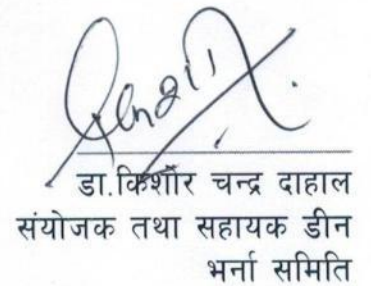 डा.किशोर चन्द्र दाहाल
संयोजक तथा सहायक डीन
भर्ना समिति